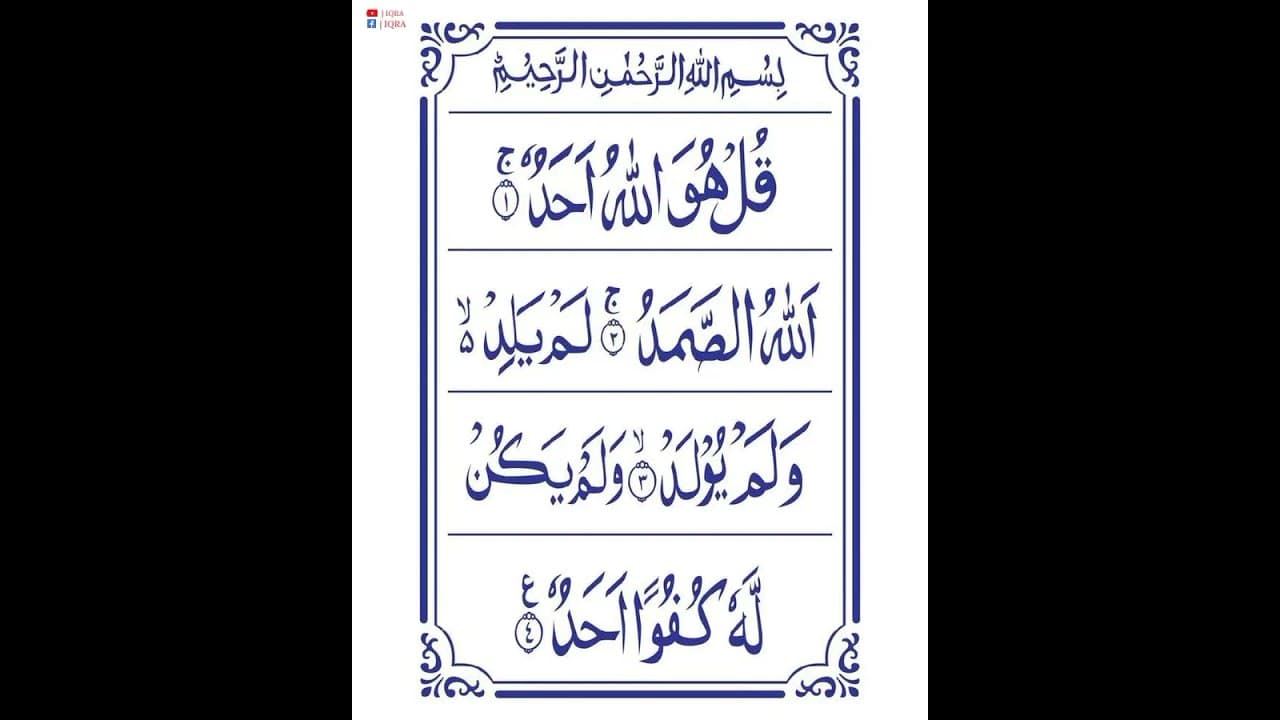 | IQRA
| IQRA
بِسْمِ اللّٰهِ الرَّحْمٰنِ الرَّحِيْمِ
قُلْ هُوَ اللّٰهُ اَحَدٌ ۚ ۝١
اَللّٰهُ الصَّمَدُ ۚ ۝٢ لَمْ يَلِدْ ۙ ۵
وَلَمْ يُوْلَدْ ۙ ۝٣ وَلَمْ يَكُنْ
لَّهٗ كُفُوًا اَحَدٌ ۝٤ ع